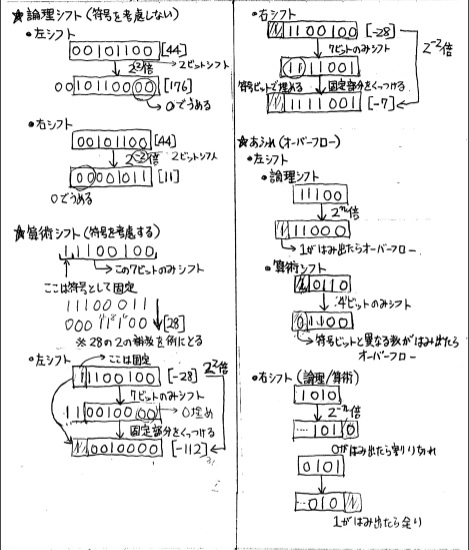 ★論理シフト(符号を考慮しない)
・左シフト
00101100 [44]
2²倍 2ビットシフト
00 10110000 [176]
0でうめる
・右シフト
00101100 [44]
2⁻²倍 2ビットシフト
00001011 [11]
0でうめる
★算術シフト(符号を考慮する)
11100100
この7ビットのみシフト
ここは符号として固定
11100011
00011100 [28]
※28の2の補数を例にとる
・左シフト ここは固定
11100100 [-28] 2²倍
7ビットのみシフト
11 00100 00 0埋め
固定部分をくっつける
0010000 [-112]
・右シフト
1100100 [-28]
7ビットのみシフト 2⁻²倍
1111001
符号ビットで埋める 固定部分をくっつける
1111001 [-7]
★あふれ(オーバーフロー)
・左シフト
・論理シフト
11100
2ⁿ倍
11000
1がはみ出たらオーバーフロー
・算術シフト
0110
4ビットのみシフト
01100
符号ビットと異なる数がはみ出たら
オーバーフロー
・右シフト(論理/算術)
1010
2⁻ⁿ倍
…101 0
0がはみ出たら割り切れ
0101
…010
1がはみ出たら余り